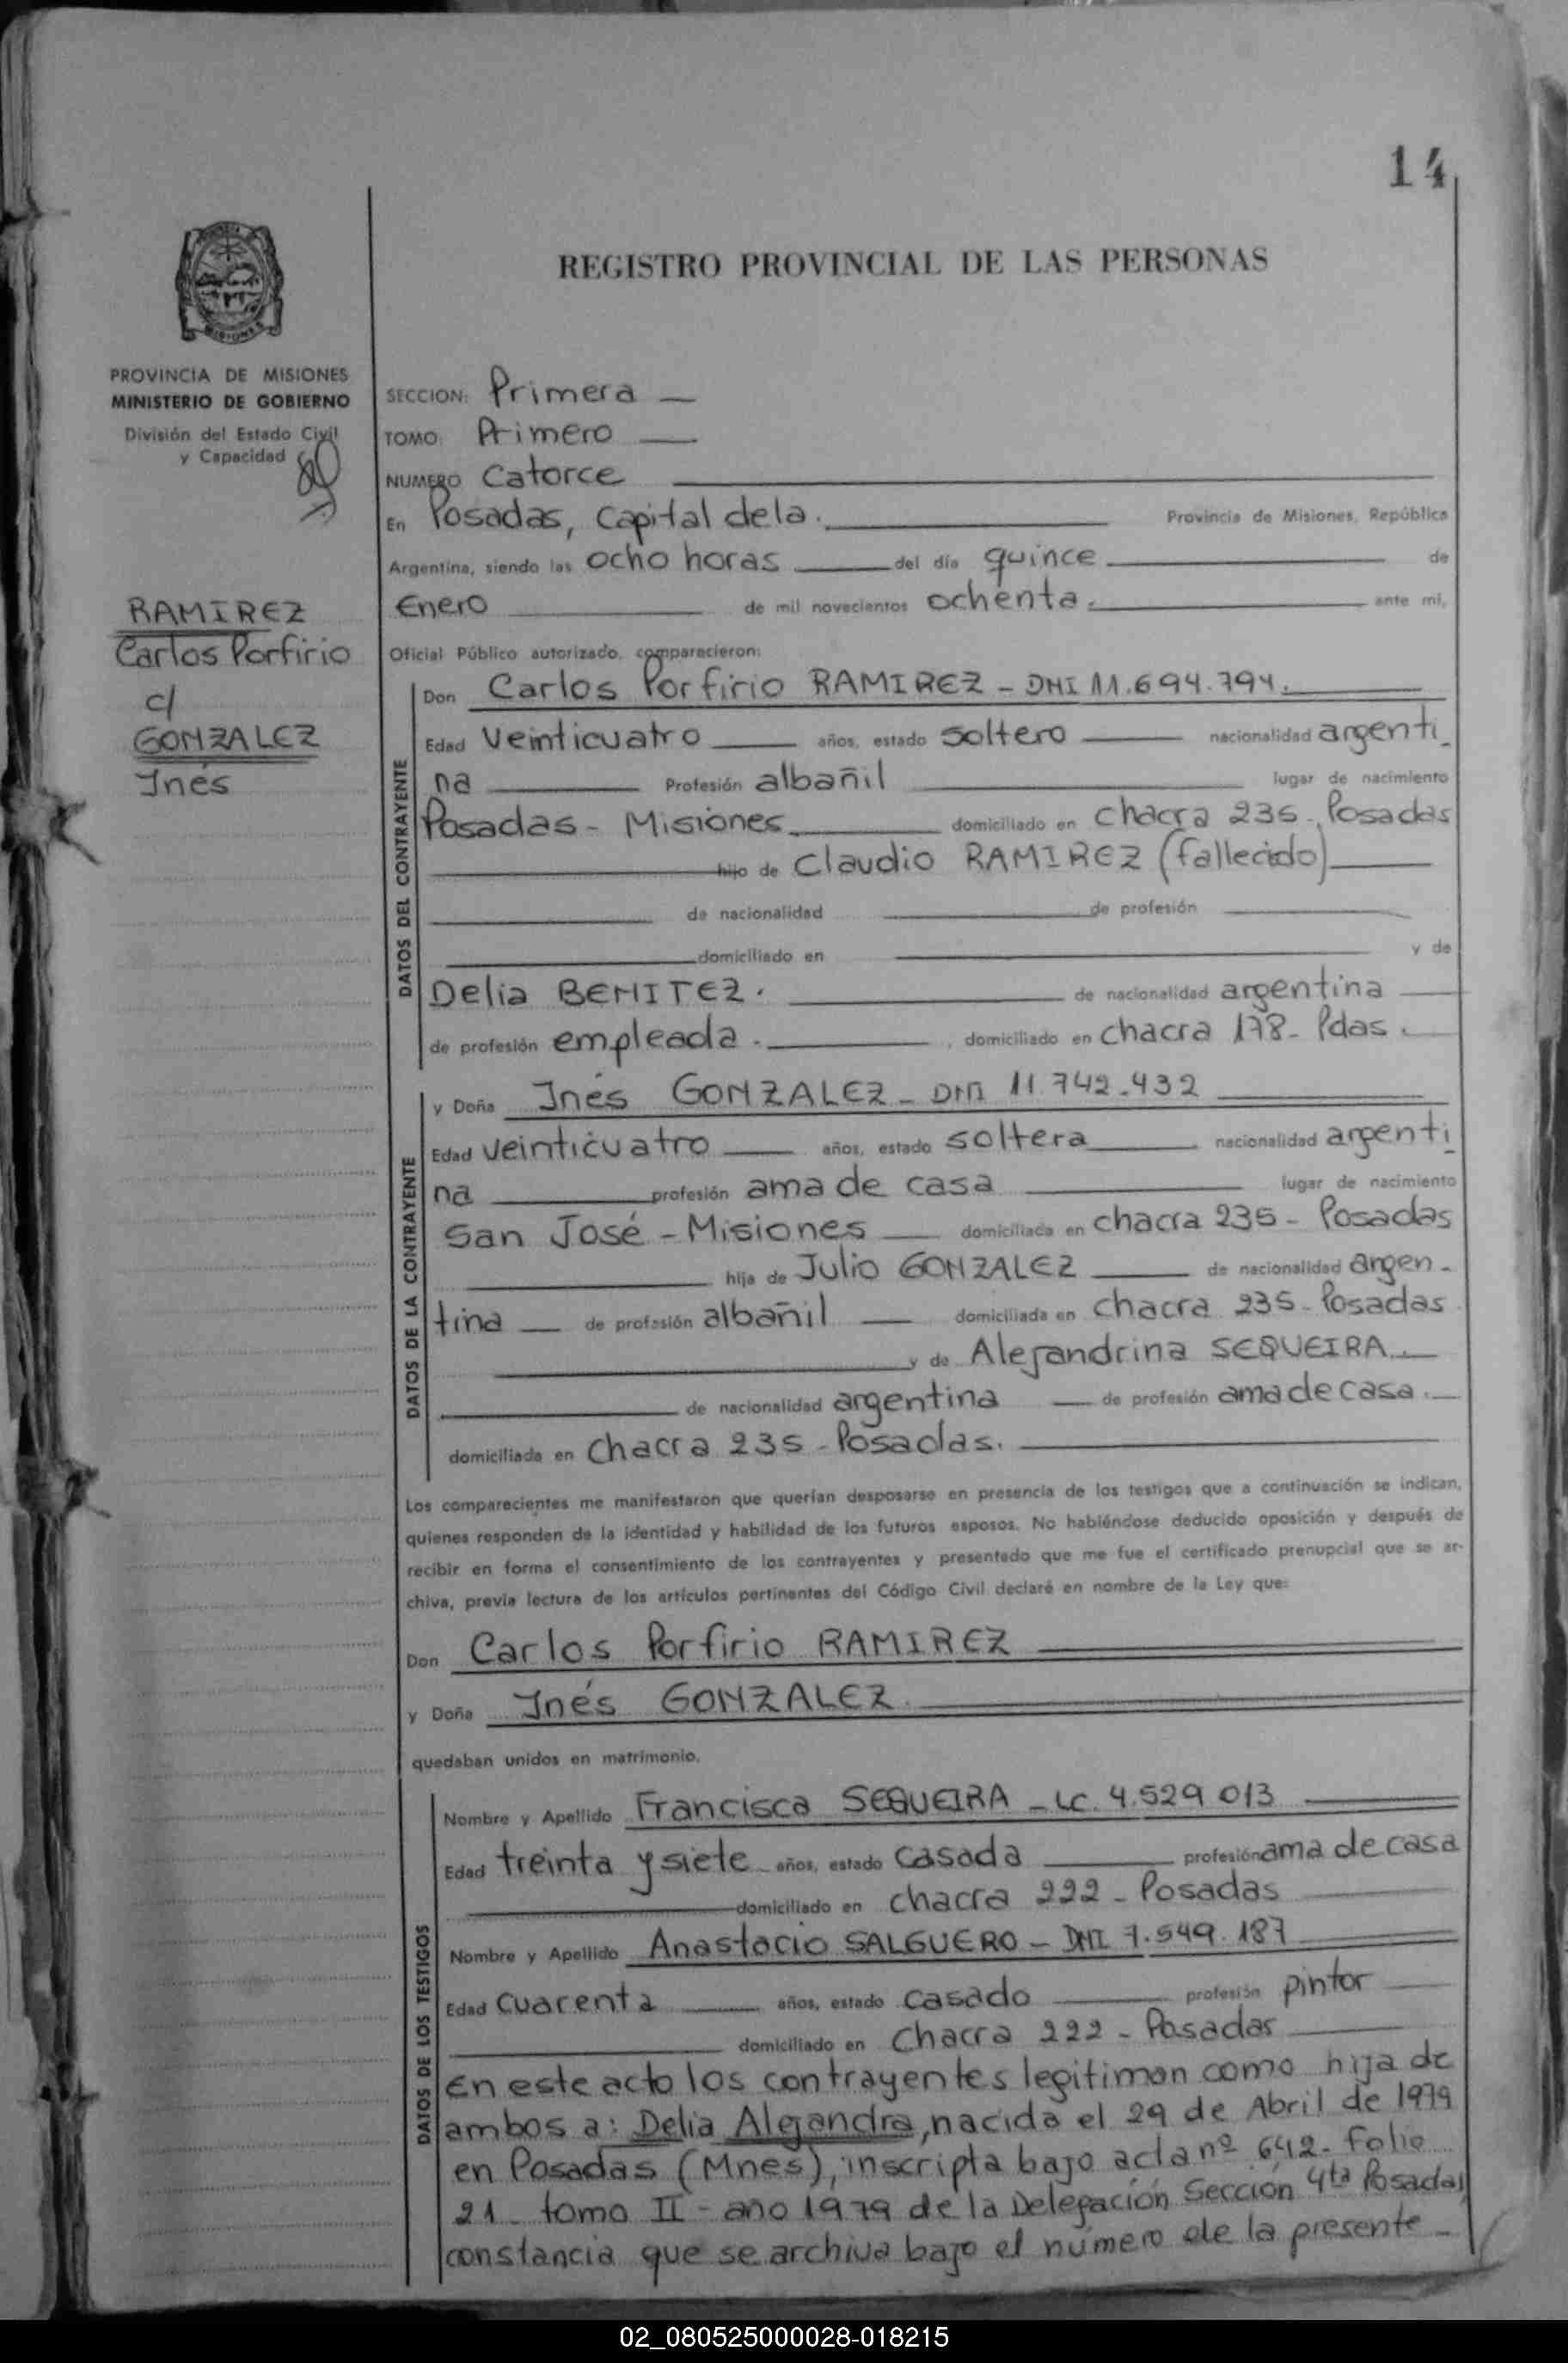 14
REGISTRO PROVINCIAL DE LAS PERSONAS
MISIONES
PROVINCIA DE MISIONES
MINISTERIO DE GOBIERNO
División del Estado Civil
y Capacidad
RAMIREZ
Carlos Porfirio
c/
GONZALEZ
Inés
SECCION: Primera —
TOMO: Primero —
NUMERO Catorce
En Posadas, Capital de la. Provincia de Misiones, República
Argentina, siendo las ocho horas del día quince de
Enero de mil novecientos ochenta. ante mi,
Oficial Público autorizado, comparecieron:
DATOS DEL CONTRAYENTE
Don Carlos Porfirio RAMIREZ - DNI 11.694.794.
Edad Veinticuatro años, estado soltero nacionalidad argenti
na Profesión albañil lugar de nacimiento
Posadas - Misiones domiciliado en chacra 235 - Posadas
hijo de Claudio RAMIREZ (fallecido)
de nacionalidad de profesión
domiciliado en y de
Delia BENITEZ. de nacionalidad argentina
de profesión empleada. , domiciliado en chacra 178 - Pdas.
DATOS DE LA CONTRAYENTE
y Doña Inés GONZALEZ - DNI 11.742.432
Edad veinticuatro años, estado soltera nacionalidad argenti
na profesión ama de casa lugar de nacimiento
San José - Misiones domiciliada en chacra 235 - Posadas
hija de Julio GONZALEZ de nacionalidad argen-
tina de profesión albañil domiciliada en chacra 235 - Posadas.
y de Alejandrina SEQUEIRA.
de nacionalidad argentina de profesión ama de casa.
domiciliada en chacra 235 - Posadas.
Los comparecientes me manifestaron que querían desposarse en presencia de los testigos que a continuación se indican,
quienes responden de la identidad y habilidad de los futuros esposos. No habiéndose deducido oposición y después de
recibir en forma el consentimiento de los contrayentes y presentado que me fue el certificado prenupcial que se ar-
chiva, previa lectura de los artículos pertinentes del Código Civil declaré en nombre de la Ley que:
Don Carlos Porfirio RAMIREZ
y Doña Inés GONZALEZ.
quedaban unidos en matrimonio.
DATOS DE LOS TESTIGOS
Nombre y Apellido Francisca SEQUEIRA - LC. 4.529 013
Edad treinta y siete años, estado casada profesión ama de casa
domiciliado en chacra 222 - Posadas
Nombre y Apellido Anastacio SALGUERO - DNI 7.549.187
Edad cuarenta años, estado casado profesión pintor
domiciliado en chacra 222 - Posadas
En este acto los contrayentes legitiman como hija de
ambos a: Delia Alejandra, nacida el 29 de Abril de 1979
en Posadas (Mnes), inscripta bajo acta nº 642 - Folio
21 - tomo II - año 1979 de la Delegación Sección 4ta Posadas,
constancia que se archiva bajo el número de la presente -
02_080525000028-018215